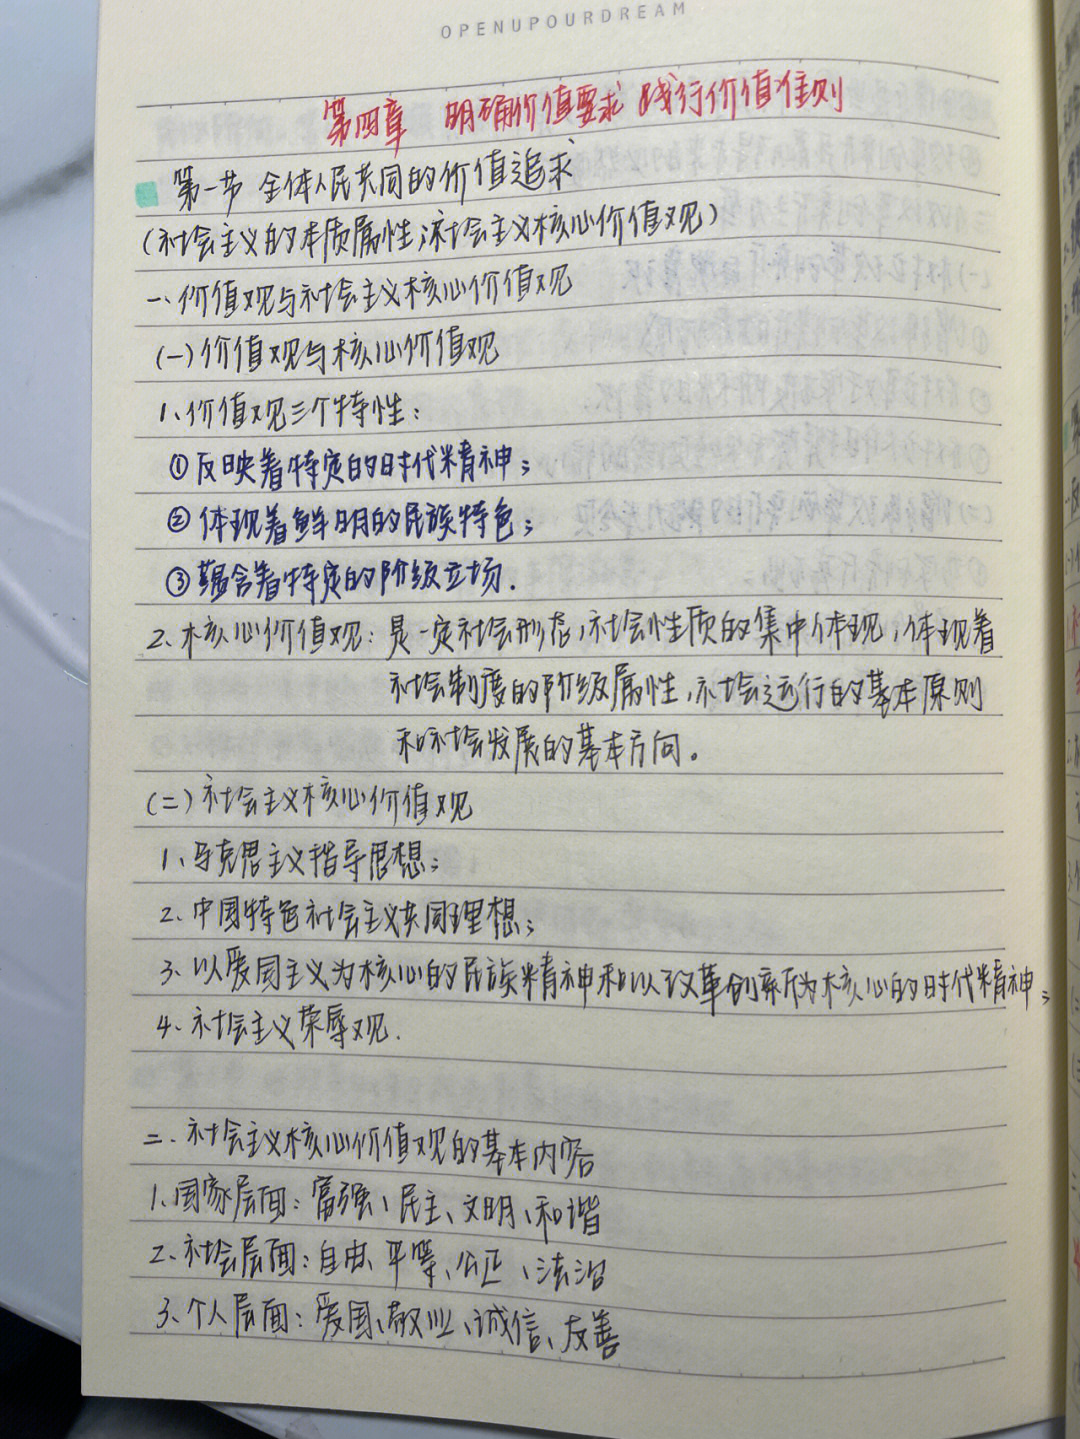 OPENUPOURDREAM
第四章 明确价值要求 践行价值准则
第一节 全体人民共同的价值追求
(社会主义的本质属性:社会主义核心价值观)
一、价值观与社会主义核心价值观
(一)价值观与核心价值观
1、价值观三个特性:
①反映着特定的时代精神;
②体现着鲜明的民族特色;
③蕴含着特定的阶级立场.
2、核心价值观:是一定社会形态,社会性质的集中体现,体现着
社会制度的阶级属性,社会运行的基本原则
和社会发展的基本方向。
(二)社会主义核心价值观
1、马克思主义指导思想;
2、中国特色社会主义共同理想;
3、以爱国主义为核心的民族精神和以改革创新为核心的时代精神;
4、社会主义荣辱观.
二、社会主义核心价值观的基本内容
1、国家层面:富强、民主、文明、和谐
2、社会层面:自由、平等、公正、法治
3、个人层面:爱国、敬业、诚信、友善